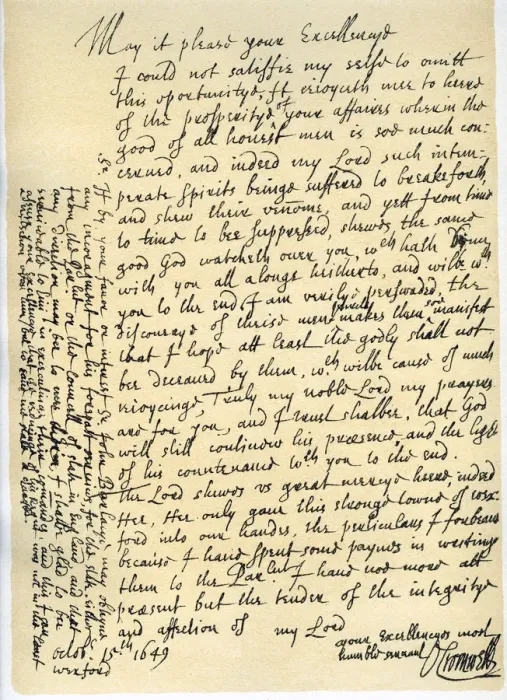 May it please your Excellencye
I could not satisfie my selfe to omitt
this oportunitye, It enioyeth mee to heere
of the prosperitye of your affaires wherin the
good of all honest men is soe much con=
cerned, and indeed my Lord such intem=
perate Spirits beinge suffered to breake forth
and shew their venome, and yett from time
to time to bee suppressed, shewes the same
good God watcheth over you, wch hath binn
with you all alonge hitherto, and wilbe wth
you to the end, I am verily perswaded, the
discourye of theise men makes them soe manifest
that I hope att least the godly shall not
bee deceaued by them, wch wilbe cause of much
reioycinge, Truly my noble Lord my prayers
are for you, and I trust shalbee, that God
will still continew his presence and the light
of his countenance wth you to the end.
the Lord shewes vs great mercye heere indeed
Hee, Hee only gaue this stronge towne of wex=
ford into our handes, the perticulars I forbeare
because I haue spent some paynes in writinge
them to the Parlnt I haue noe more att
present but the tender of the integritye
and affection of my Lord
your Excellencyes most
humble seruant
O Cromwell
octob. 15th 1649
wexford
Sr If by your favor or interest Sr John
may obteyne
any incoragment for his forepast services for the state either
from the Parlnt or the councell of state in England and that
any direction may bee to mee I shalbe glad to bee